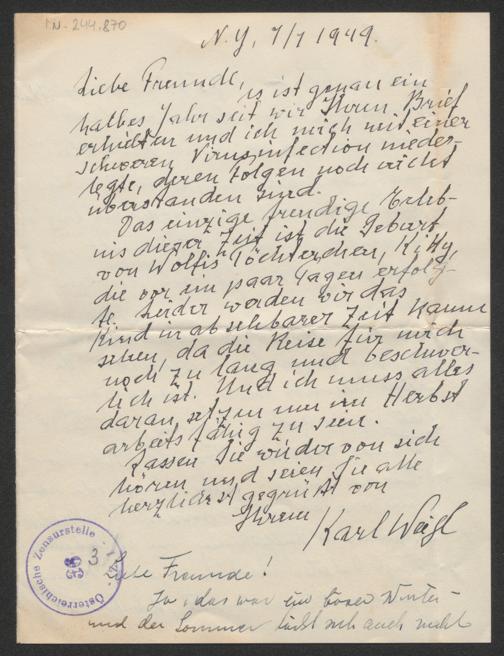 IN-244.870
N.Y, 7/7 1949.
Liebe Freunde,
es ist genau ein
halbes Jahr seit wir Ihren Brief
erhielten und ich mich mit einer
schweren Virusinfection nieder-
legte, deren Folgen noch nicht
überstanden sind.
Das einzige freudige Erleb-
nis dieser Zeit ist die Geburt
von Wolfis Töchterchen, Kitty,
die vor ein paar Tagen erfolg-
te. Leider werden wir das
Kind in absehbarer Zeit kaum
sehen, da die Reise für mich
noch zu lang und beschwer-
lich ist. Und ich muss alles
daran setzen um im Herbst
arbeitsfähig zu sein.
Lassen Sie wieder von sich
hören und seien Sie alle
herzlichst gegrüsst von
Ihrem
Karl Weigl
Österreichische Zensurstelle
3
Liebe Freunde!
Ja, das war ein böser Winter
und der Sommer läßt sich auch nicht